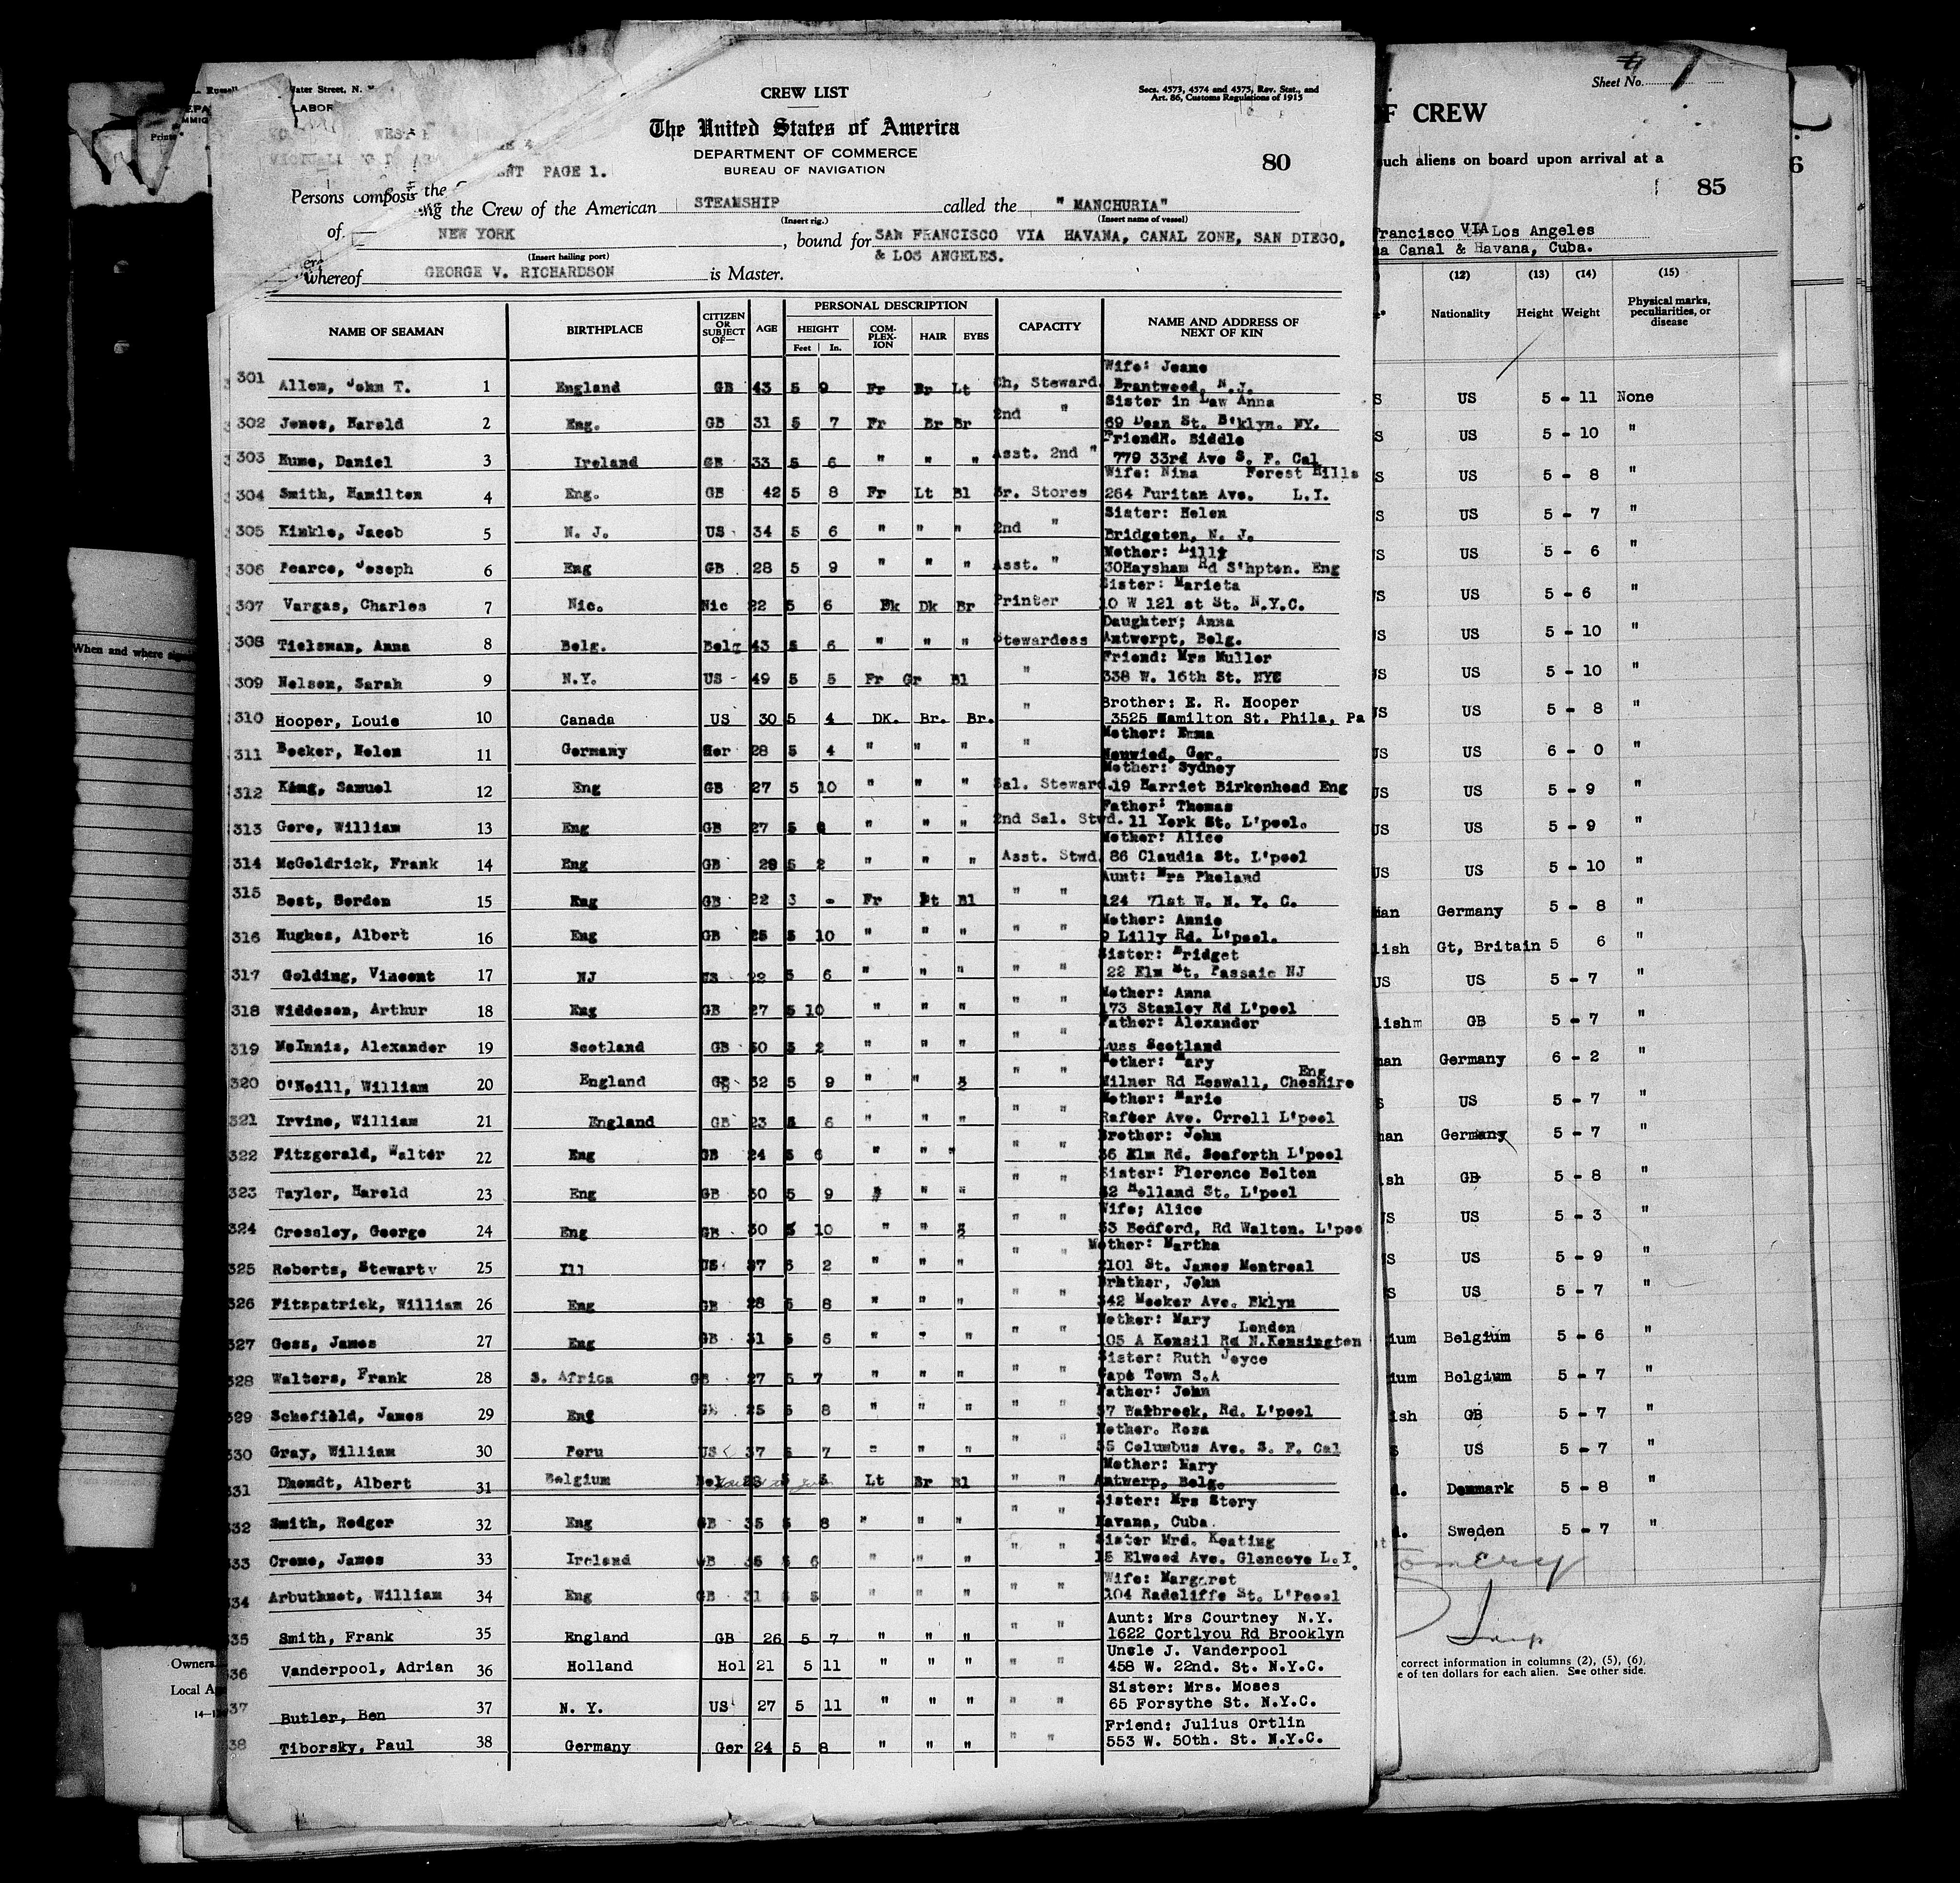 CREW LIST
Secs. 4573, 4574 and 4575, Rev. Stat., and
Art. 86, Customs Regulations of 1915
The United States of America
DEPARTMENT OF COMMERCE
BUREAU OF NAVIGATION
80
PAGE 1.
Persons composing the Crew of the American STEAMSHIP called the "MANCHURIA"
(Insert rig.) (Insert name of vessel)
of NEW YORK, bound for SAN FRANCISCO VIA HAVANA, CANAL ZONE, SAN DIEGO,
(Insert hailing port) & LOS ANGELES.
whereof GEORGE V. RICHARDSON is Master.
NAME OF SEAMAN BIRTHPLACE CITIZEN OR SUBJECT OF— AGE PERSONAL DESCRIPTION HEIGHT Feet In. COMPLEXION HAIR EYES CAPACITY NAME AND ADDRESS OF NEXT OF KIN
Wife: Jeane
301 Allem, John T. 1 England GB 43 5 9 Fr Br Lt Ch, Steward. Brantwood, N.J.
Sister in Law Anna
302 Jones, Harold 2 Eng. GB 31 5 7 Fr Br Br 2nd " 69 Dean St. B'klyn. NY.
FriendH. Biddle
303 Hume, Daniel 3 Ireland GB 33 5 6 " " " Asst. 2nd " 779 33rd Ave S. F. Cal
Wife: Nina Forest Hills
304 Smith, Hamilton 4 Eng. GB 42 5 8 Fr Lt Bl Sr. Stores 264 Puritan Ave. L.I.
Sister: Helen
305 Kinkle, Jacob 5 N. J. US 34 5 6 " " " 2nd " Bridgeton, N. J.
Mother: Lilly
306 Pearce, Joseph 6 Eng GB 28 5 9 " " " Asst. " 30Haysham Rd S'hpton. Eng
Sister: Marieta
307 Vargas, Charles 7 Nic. Nic 22 5 6 Dk Dk Br Printer 10 W 121 st St. N.Y.C.
Daughter; Anna
308 Tielsman, Anna 8 Belg. Belg 43 5 6 " " " Stewardess Antwerpt, Belg.
Friend: Mrs Muller
309 Nelson, Sarah 9 N.Y. US 49 5 5 Fr Gr Bl " 338 W. 16th St. NYC
Brother: E. R. Hooper
310 Hooper, Louie 10 Canada US 30 5 4 DK. Br. Br. " 3525 Hamilton St. Phila, Pa
Mother: Emma
311 Becker, Helen 11 Germany Ger 28 5 4 " " " " Neuwied, Ger.
Mother: Sydney
312 King, Samuel 12 Eng GB 27 5 10 " " " Sal. Steward. 19 Harriet Birkenhead Eng
Father: Thomas
313 Gore, William 13 Eng GB 27 5 " " " 2nd Sal. Stwd. 11 York St. L'pool.
Mother: Alice
314 McGoldrick, Frank 14 Eng GB 29 5 2 " " " Asst. Stwd 86 Claudia St. L'pool
Aunt: Mrs Pheland
315 Best, Gordon 15 Eng GB 22 3 - Fr Bl " " 124 71st W. N. Y. C.
Mother: Annie
316 Hughes, Albert 16 Eng GB 25 5 10 " " " " " 9 Lilly Rd. L'pool.
Sister: Bridget
317 Golding, Vincent 17 NJ US 22 5 6 " " " " " 22 Elm St, Passaic NJ
Mother: Anna
318 Widdesen, Arthur 18 Eng GB 27 5 10 " " " " " 173 Stanley Rd L'pool
Father: Alexander
319 McInnis, Alexander 19 Scotland GB 30 5 2 " " " " " Luss Scotland
Mother: Mary Eng
320 O'Neill, William 20 England GB 32 5 9 " " " " Milner Rd Heswall, Cheshire
Mother: Marie
321 Irvine, William 21 England GB 23 5 6 " " " " " Rafter Ave. Orrell L'pool
Brother: John
322 Fitzgerald, Walter 22 Eng GB 24 5 6 " " " " " 36 Elm Rd. Seaforth L'pool
Sister: Florence Bolton
323 Tayler, Harold 23 Eng GB 30 5 9 " " " " " 32 Holland St. L'pool
Wife; Alice
324 Cressley, George 24 Eng GB 30 5 10 " " " " 53 Bedford, Rd Walton. L'poo
Mother: Martha
325 Roberts, Stewart 25 Ill US 37 5 2 " " " " " 2101 St. James Montreal
Brether, John
326 Fitzpatrick, William 26 Eng GB 28 5 8 " " " " " 342 Meeker Ave. Bklyn
Mother: Mary London
327 Goss, James 27 Eng GB 31 5 6 " " " " " 105 A Kensil Rd N.Kensington
Sister: Ruth Joyce
328 Walters, Frank 28 S. Africa GB 27 5 7 " " " " " Cape Town S.A
Father: John
329 Schofield, James 29 Eng GB 25 5 8 " " " " " 37 Walbrook, Rd. L'pool
Mother. Rosa
330 Gray, William 30 Peru US 37 5 7 " " " " " 55 Columbus Ave. S. F. Cal
Mother: Mary
331 Dhemdt, Albert 31 Belgium Bel 28 5 5 Lt Br Bl " " Antwerp, Belg.
Sister: Mrs Story
332 Smith, Rodger 32 Eng GB 35 5 8 " " " " " Havana, Cuba.
Sister Mrd. Keating
333 Creme, James 33 Ireland GB 36 5 6 " " " " " 15 Elwood Ave. Glencove L.I.
Wife: Margaret
334 Arbuthnot, William 34 Eng GB 31 5 5 " " " " " 104 Radcliffe St. L'Pool
Aunt: Mrs Courtney N.Y.
335 Smith, Frank 35 England GB 26 5 7 " " " " " 1622 Cortlyou Rd Brooklyn
Unsle J. Vanderpool
36 Vanderpool, Adrian 36 Holland Hol 21 5 11 " " " " " 458 W. 22nd. St. N.Y.C.
Sister: Mrs. Moses
37 Butler, Ben 37 N. Y. US 27 5 11 " " " " " 65 Forsythe St. N.Y.C.
Friend: Julius Ortlin
38 Tiborsky, Paul 38 Germany Ger 24 5 8 " " " " " 553 W. 50th. St. N.Y.C.
When and where
Owners
Local
Sheet No.
F CREW
such aliens on board upon arrival at a
85
Francisco VIA Los Angeles
Canal & Havana, Cuba.
(12) (13) (14) (15)
Nationality Height Weight Physical marks, peculiarities, or disease
US 5 - 11 None
US 5 - 10 "
US 5 - 8 "
US 5 - 7 "
US 5 - 6 "
US 5 - 6 "
US 5 - 10 "
US 5 - 10 "
US 5 - 8 "
US 6 - 0 "
US 5 - 9 "
US 5 - 9 "
US 5 - 10 "
man Germany 5 - 8 "
lish Gt, Britain 5 6 "
US US 5 - 7 "
lishm GB 5 - 7 "
man Germany 6 - 2 "
US 5 - 7 "
man Germany 5 - 7 "
ish GB 5 - 8 "
US 5 - 3 "
US 5 - 9 "
US 5 - 7 "
ium Belgium 5 - 6 "
ium Belgium 5 - 7 "
ish GB 5 - 7 "
US 5 - 7 "
Denmark 5 - 8 "
Sweden 5 - 7 "
correct information in columns (2), (5), (6),
e of ten dollars for each alien. See other side.